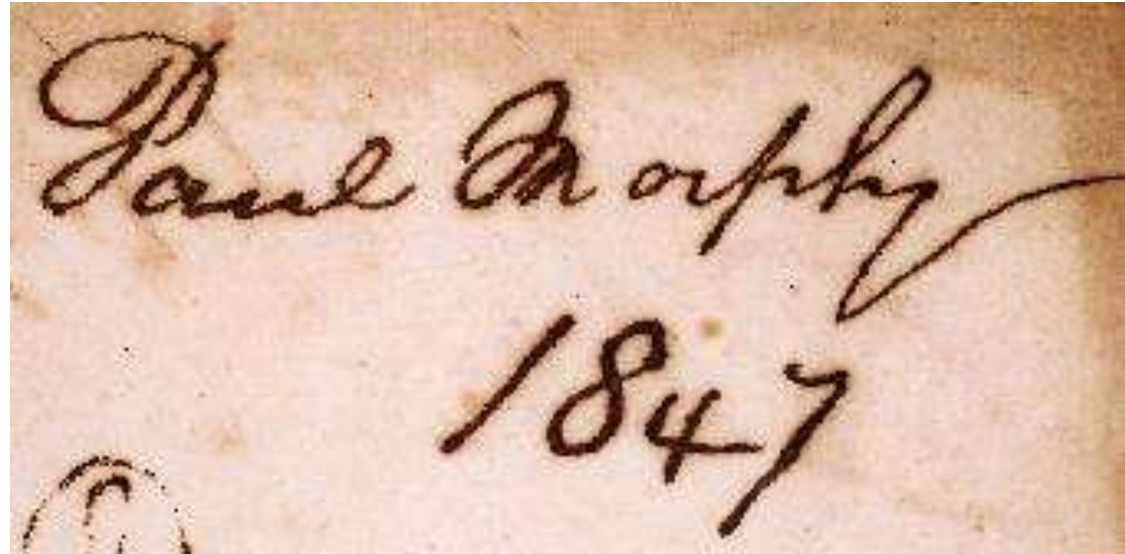 Paul Morphy
1847